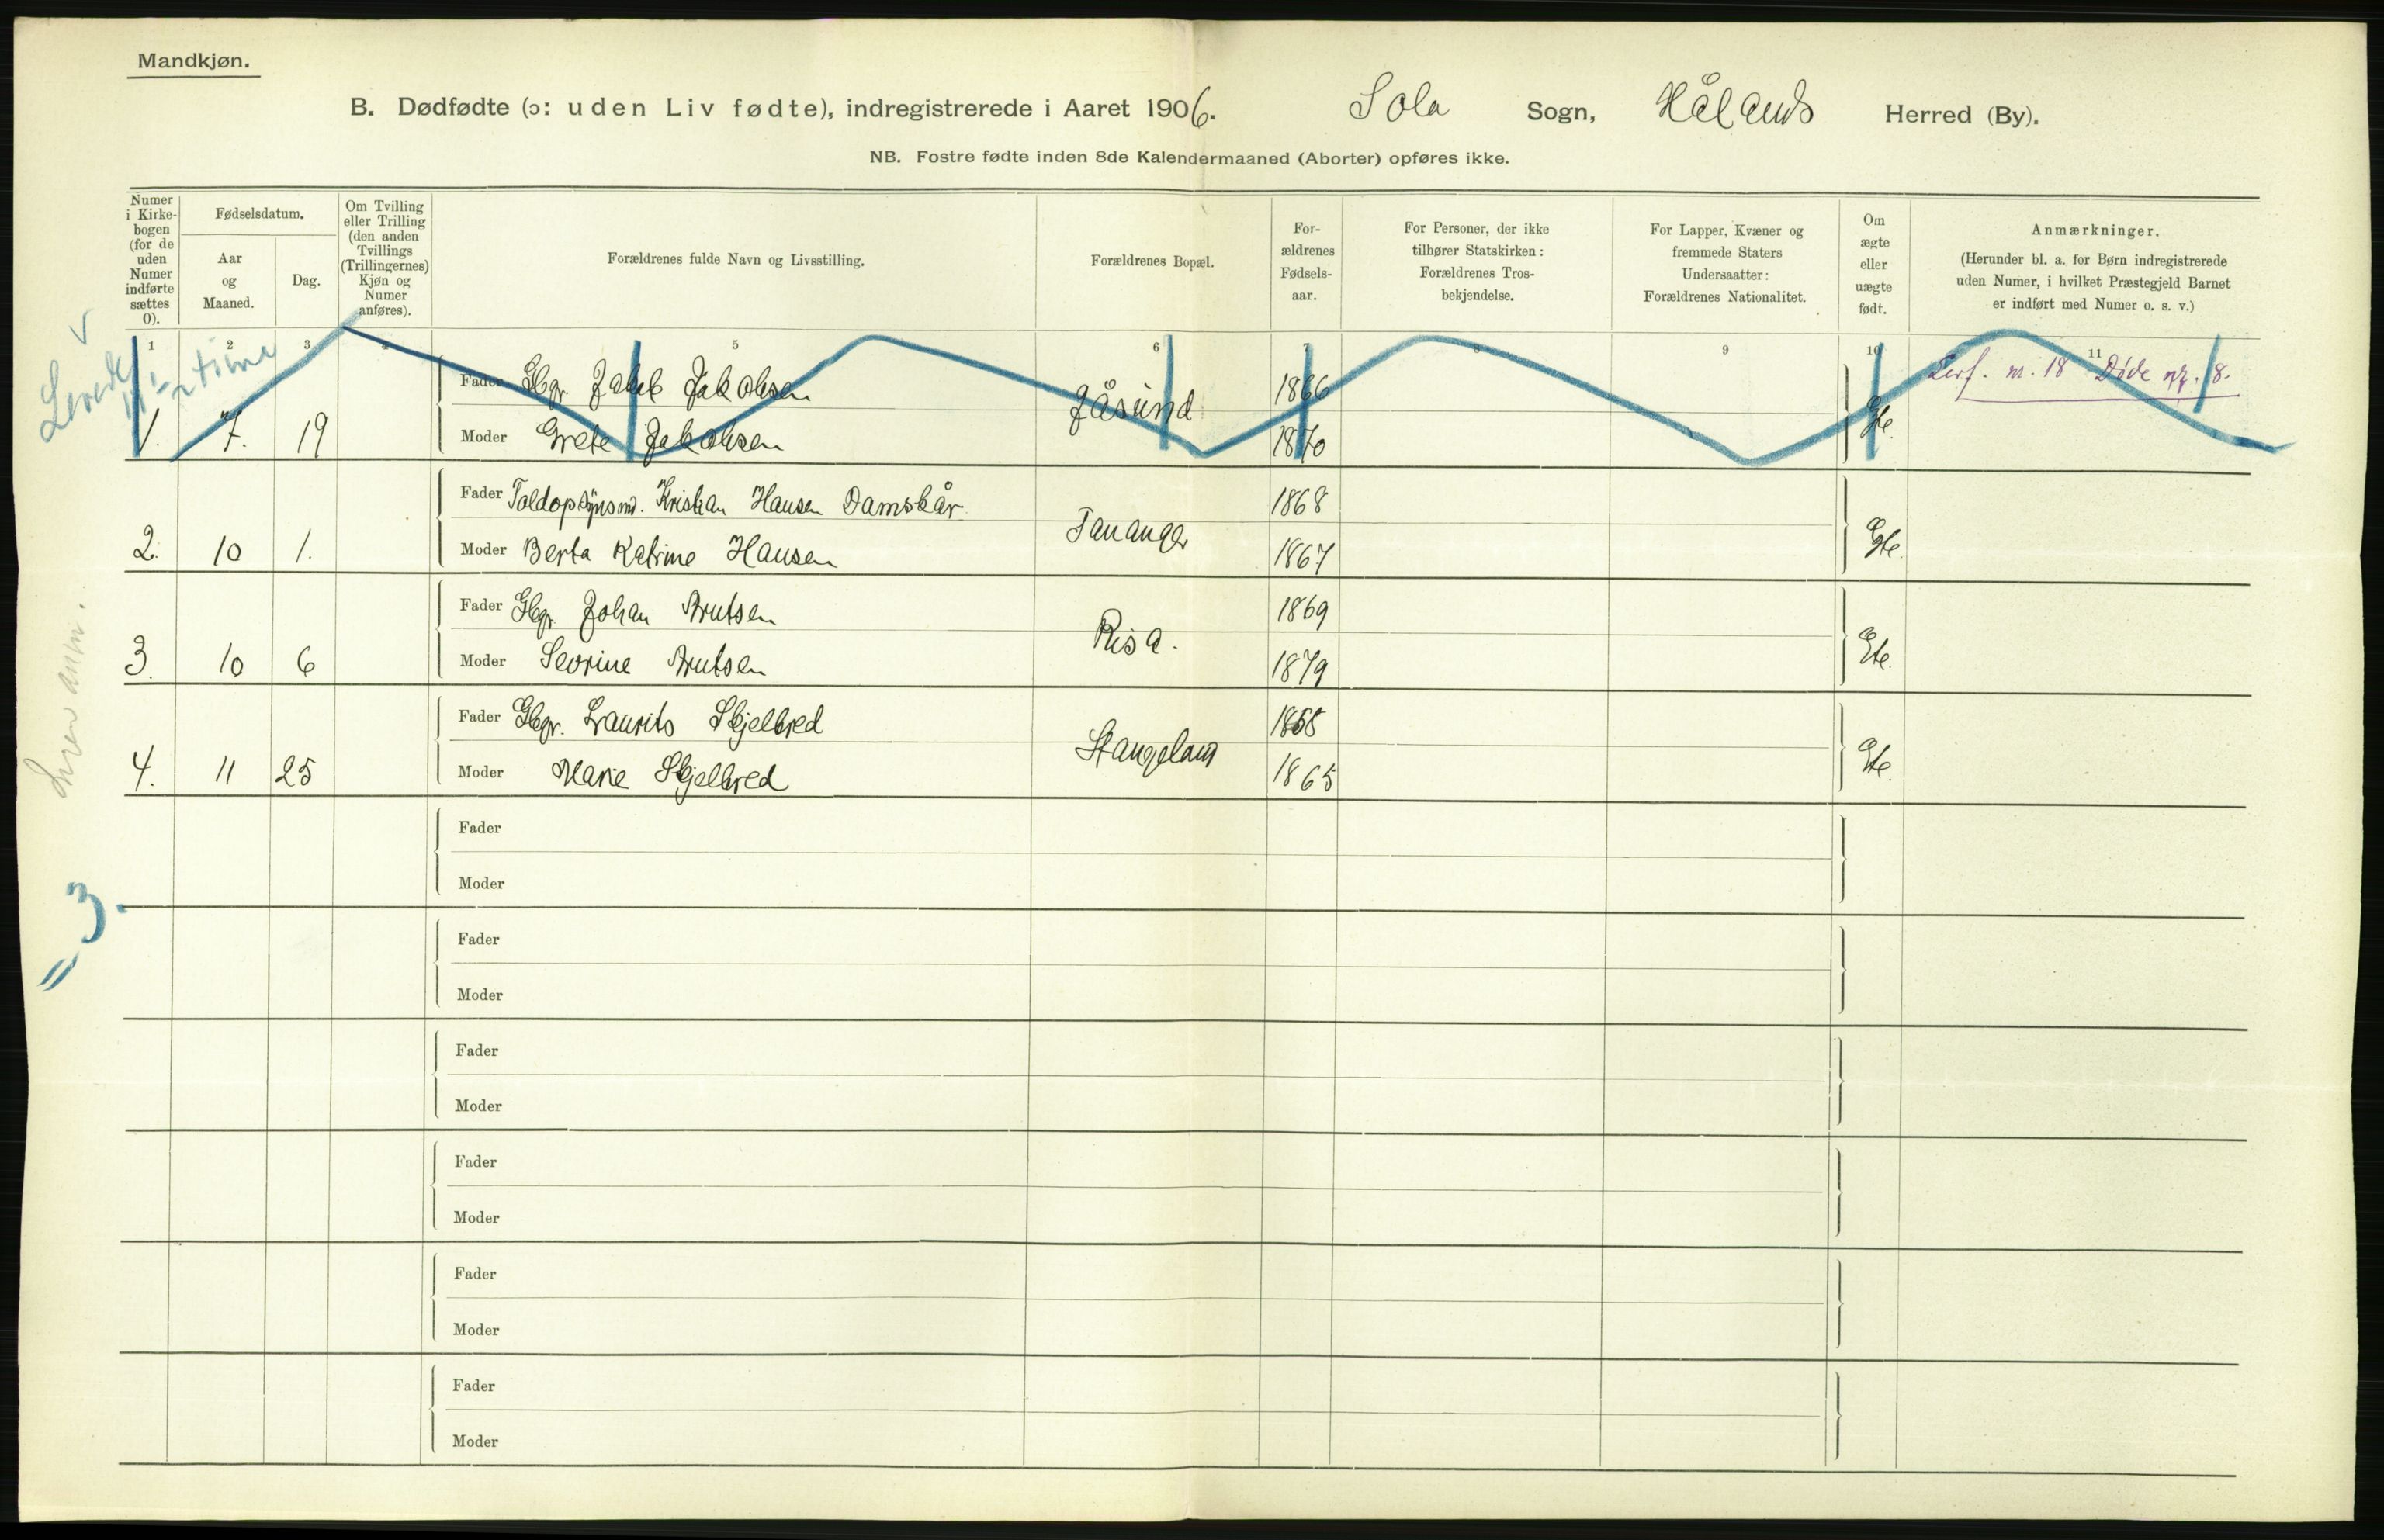 Mandkjøn.
B. Dødfødte (ɔ: uden Liv fødte), indregistrerede i Aaret 1906. Sola Sogn, Hålands Herred (By).
NB. Fostre fødte inden 8de Kalendermaaned (Aborter) opføres ikke.
Numer i Kirke-bogen (for de uden Numer indførte sættes 0).
Fødselsdatum.
Aar og Maaned.
Dag.
Om Tvilling eller Trilling (den anden Tvillings (Trillingernes) Kjøn og Numer anføres).
Forældrenes fulde Navn og Livsstilling.
Forældrenes Bopæl.
For-ældrenes Fødsels-aar.
For Personer, der ikke tilhører Statskirken: Forældrenes Tros-bekjendelse.
For Lapper, Kvæner og fremmede Staters Undersaatter: Forældrenes Nationalitet.
Om ægte eller uægte født.
Anmærkninger.
(Herunder bl. a. for Børn indregistrerede uden Numer, i hvilket Præstegjeld Barnet er indført med Numer o. s. v.)
1 2 3 4 5 6 7 8 9 10 11
Levede
time
Fader Gbgr. Jakob Jakobsen Jåsund 1866 m. 18 Døde nr. 8.
1. 7. 19 Moder Grete Jakobsen 1870 Gte.
Fader Toldopsynsm. Kristian Hansen Damskår Tananger 1868
2. 10 1. Moder Berta Katrine Hansen 1867 Gte.
Fader Gbgr Johan Brutsen Risa. 1869
3. 10 6 Moder Sevrine Brutsen 1879 Gte.
Fader Gbgr. Laurits Skjelbred Stangeland 1858
4. 11 25 Moder Marie Skjelbred 1865 Gte.
Fader
Moder
= 3.
Fader
Moder
Fader
Moder
Fader
Moder
Fader
Moder
Fader
Moder